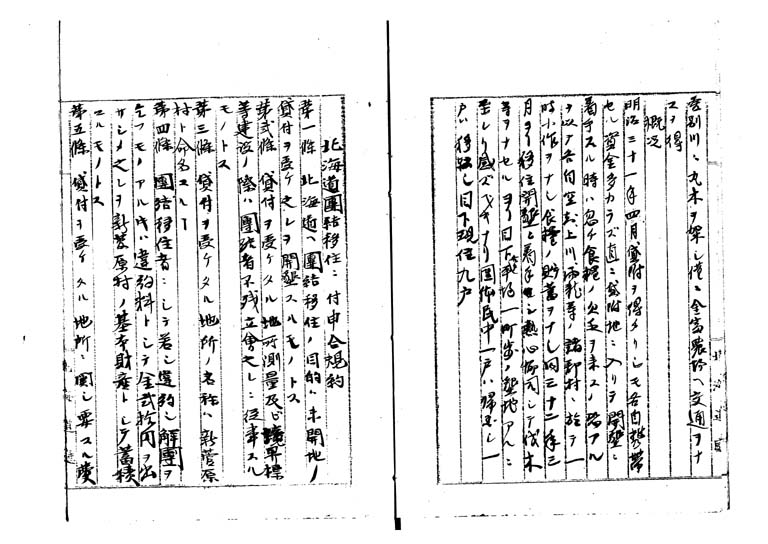 登別川ニ丸木ヲ架シ僅ニ全富農場ヘ交通ヲナ
スヲ得
概况
明治三十一年四月貸附ヲ得タリシモ各自携帯
セル資金多カラズ直ニ貸附地ニ入リテ開墾ニ
着手スル時ハ忽チ食糧ノ欠乏ヲ来スノ恐アル
ヲ以テ各自空知上川雨龍等ノ諸郡村ニ於テ一
時小作ヲナシ食糧ノ貯蓄ヲナシ同三十二年三
月ヨリ移住開墾ニ着手セシ熱心協同シテ伐木
等ヲナセルヨリ目下
至レリ感ズベキナリ団体民中一戸ハ帰国シ一
戸ハ移轉シ目下現住九戸
北海道團結移住ニ付申合規約
第一條 北海道ヘ團結移住ノ目的ハ未開地ノ
貸付ヲ受ケ之レヲ開墾スルモノトス
第弐條 貸付ヲ受ケタル地所測量及ビ境界標
等建設ノ際ハ團結者不残立會之レニ従事スル
モノトス
第三條 貸付ヲ受ケタル地所ノ名称ハ新菅原
村ト命名スルー
第四條 團結移住者ニシテ若シ違約シ解團ヲ
乞フモノアル時ハ違約料トシテ金弐拾円ヲ出
サシメ之レヲ新菅原村ノ基本財産トシテ蓄積
スルモノトス
第五條 貸付ヲ受ケタル地所ニ関シ要スル費